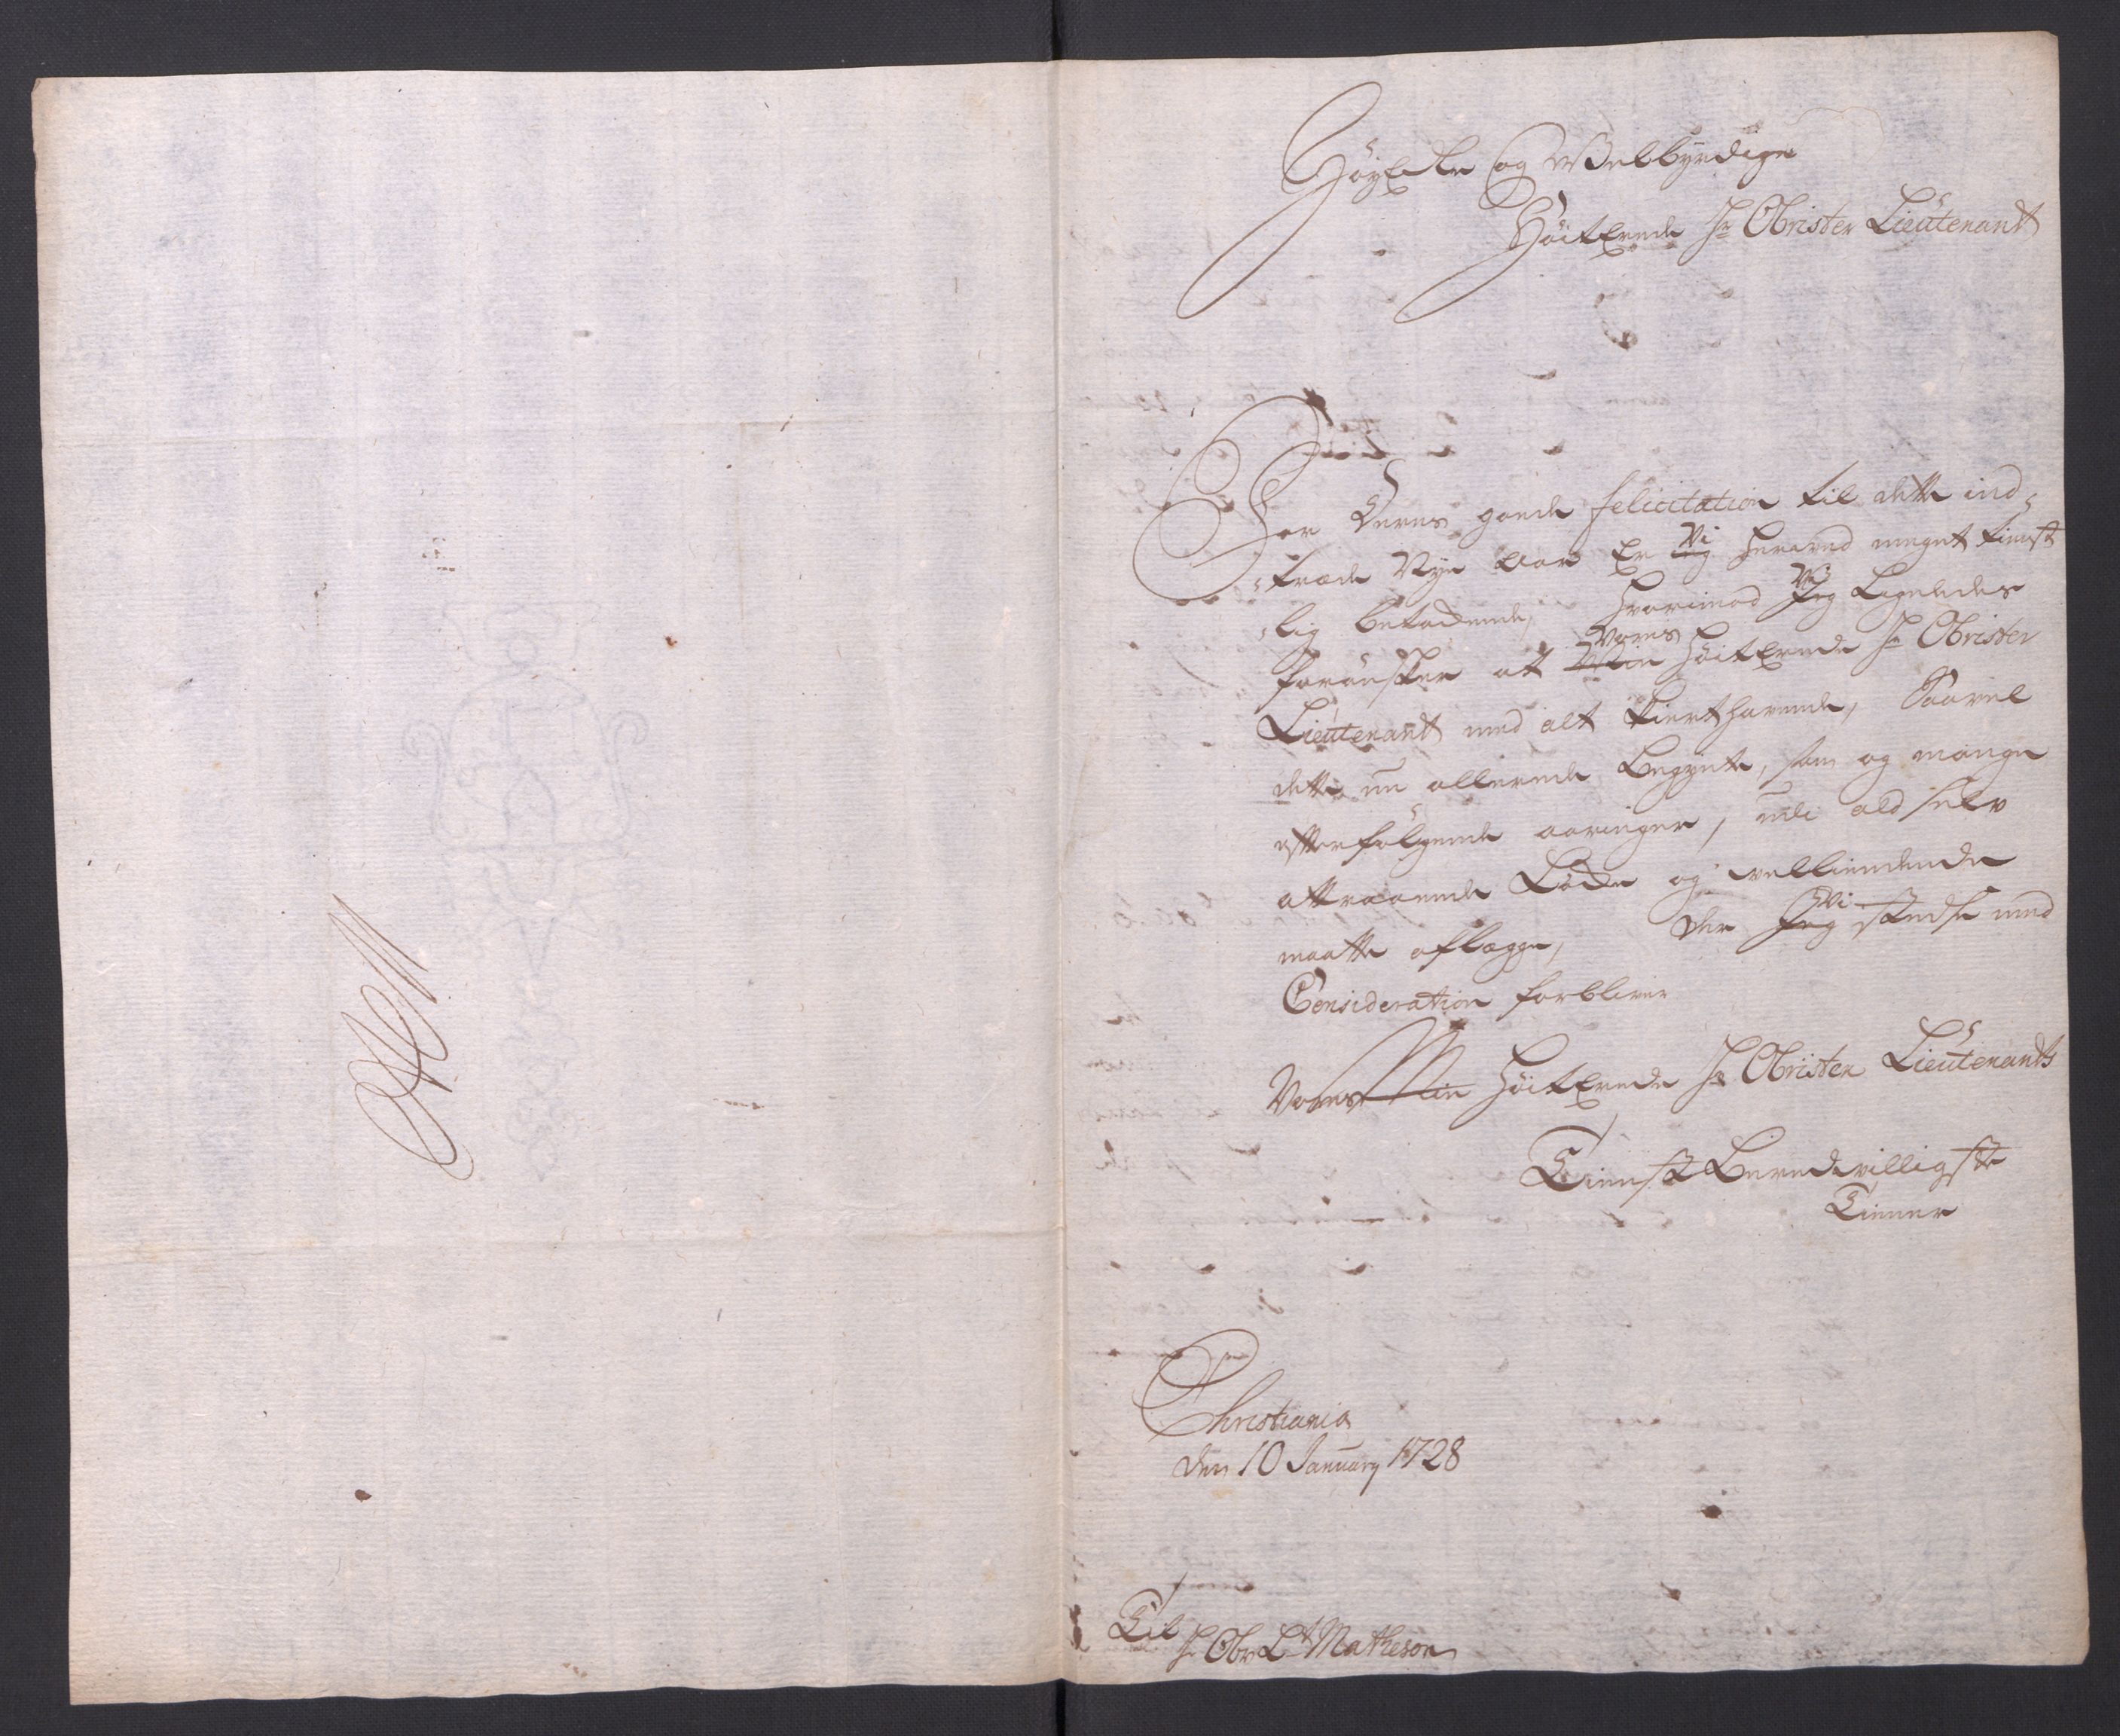 HöyEdle og Welbyrdige
HöitErede Hr Obrister Lieutenant
For Deres goede felicitation til dette ind-
-træde Nye aar Er Vi herved meget tienst
-lig betackende, hvorimod Vi Ligeledes
forönsker at Vores HöitErede Hr Obrister
Lieutenant med alt kierthavende, Saavel
dette nu allerede begynte, som og mange
efterfölgende aaringer, udi ald selv
attraaende og velbehagende
maatte aflægge, der Vi stedse med
Consideration forbliver
Vores Min HöitErede Hr Obrister Lieutenandts
Tienst Beredvilligste
Tienner
Christiania
den 10 January 1728
Til
Hr Obr Lt Matheson